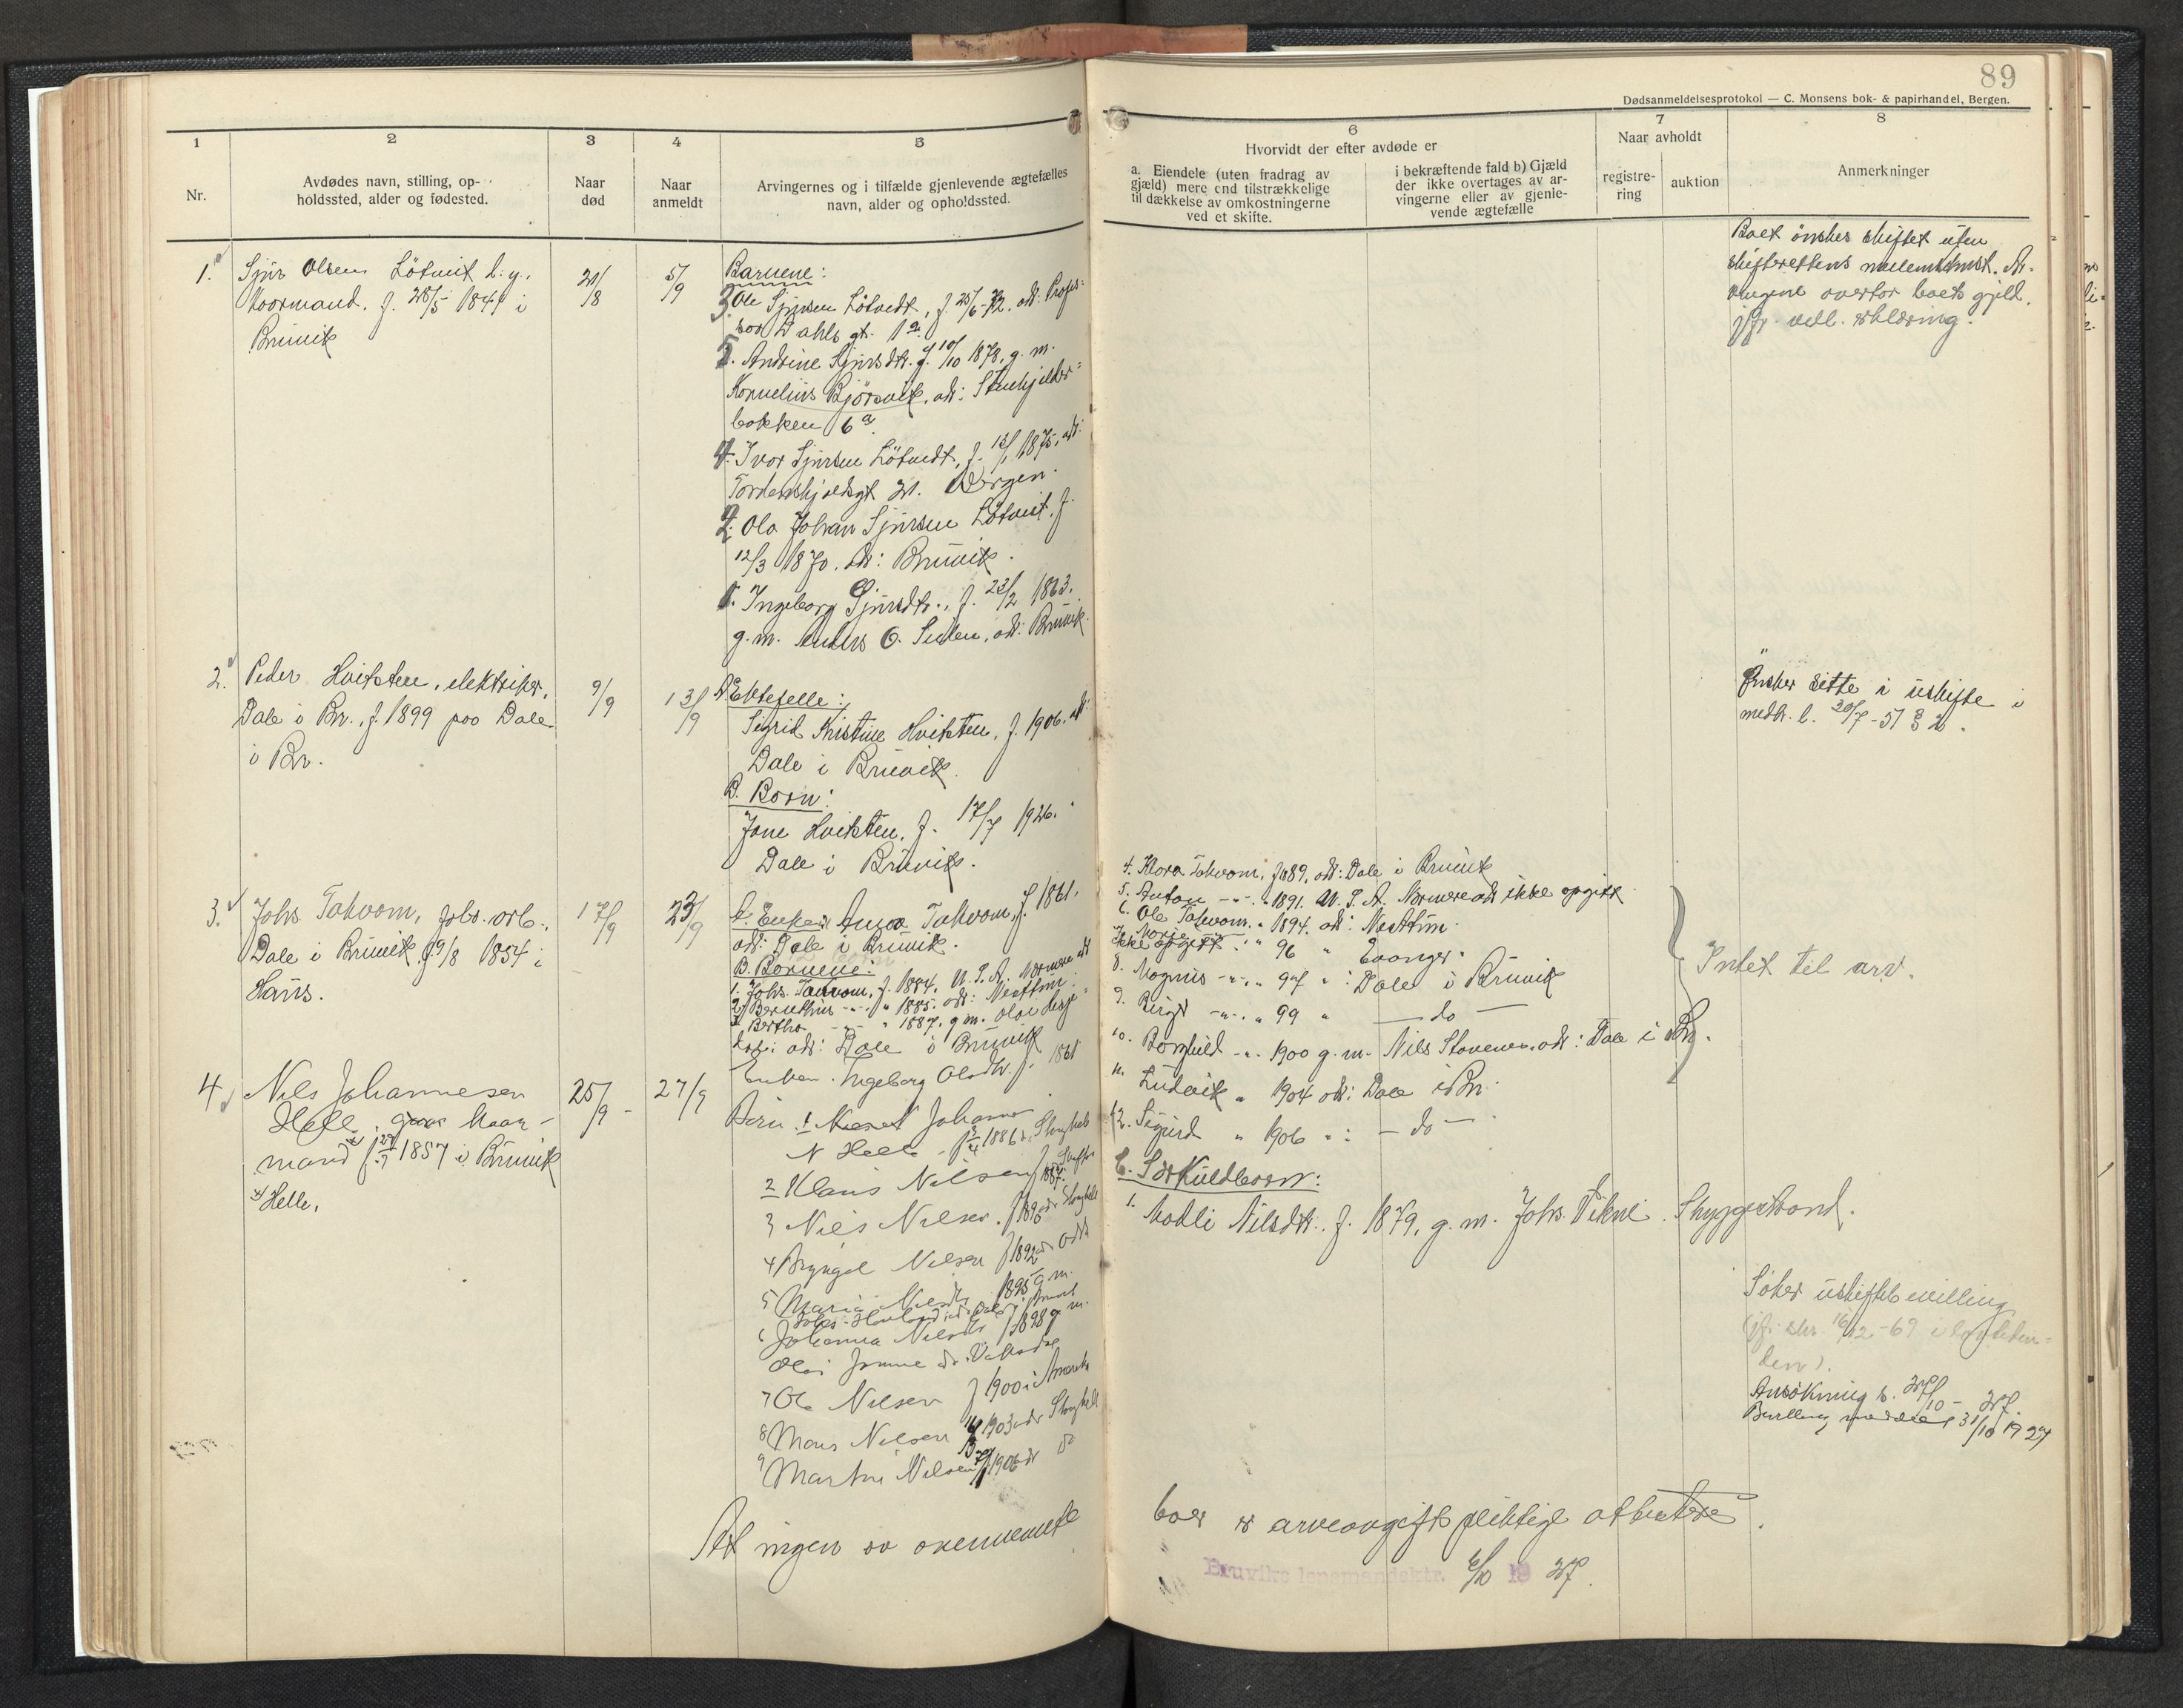 89
Dødsanmeldelsesprotokol — C. Monsens bok- & papirhandel, Bergen.
1
2
3
4
5
6
7
8
Nr.
Avdødes navn, stilling, op-
holdssted, alder og fødested.
Naar
død
Naar
anmeldt
Arvingernes og i tilfælde gjenlevende ægtefælles
navn, alder og opholdssted.
Hvorvidt der efter avdøde er
a. Eiendele (uten fradrag av
gjæld) mere end tilstrækkelige
til dækkelse av omkostningerne
ved et skifte.
i bekræftende fald b) Gjæld
der ikke overtages av ar-
vingerne eller av gjenle-
vende ægtefælle
Naar avholdt
registre-
ring
auktion
Anmerkninger
1. Sjur Olsen Lötveit d. y.,
Kaarmand. f. 28/5 1841 i
Bruvik
21/8
5/9
Barnene:
3. Ole Sjursen Lötvedt, f. 25/6-72. adr: Profes-
sor Dahls gt. 1a.
5. Andrine Sjursdtr. f. 10/10 1878, g. m.
Kornelius Bjørsvik, adr:
bakken 6a.
4. Ivar Sjursen Lötvedt, f. 13/1 1875, adr:
Tordenskjoldsgt 21. Bergen.
2. Ola Johan Sjursen Lötveit, f.
12/3 1870. adr: Bruvik.
1. Ingeborg Sjursdtr., f. 23/2 1863.
g. m. Anders O. adr: Bruvik.
Boet önskes skiftet uten
skifterettens mellemkomst. Ar-
vingene overtar boets gjeld,
jfr. vedl. erklæring.
2. Peder Hvitsten, elektriker,
Dale i Br., f. 1899 paa Dale
i Br.
9/9
13/9
A Ektefelle:
Sigrid Kristine Hvitsten, f. 1906. adr:
Dale i Bruvik.
B. Barn:
Jone Hvitsten, f. 17/7 1926.
Dale i Bruvik.
Ønsker sitte i uskifte i
medh. l. 30/7-51 § 2.
3. Johs. Takvam, fabr. arb.,
Dale i Bruvik f. 9/8 1854 i
Haus.
17/9
23/9
A. Enken Anna Takvam, f. 1861.
adr: Dale i Bruvik.
B. Barnene:
1. Johs. Takvam, f. 1884. U. S. A. Nærmere adr
2. Bernthin -"- " 1885. adr: Nesttun.
3. Bertha -"- " 1887. g m. Olai
adr: Dale i Bruvik
4. Klara Takvam, f. 1889, adr: Dale i Bruvik
5. Anton -"- " 1891. U. S. A. Nærmere adr ikke opgitt
6. Ole Takvam. " 1894. adr: Nesttun.
ikke opgitt
7. " 96 " Evanger.
8. Magnus -"- " 97 " : Dale i Bruvik
9. Birgit -"- " 99 " — do —
10. Borghild -"- 1900 g. m. Nils adr: Dale i Br.
11. Ludvik " 1904 adr: Dale i Br.
12. Sigurd " 1906 " : — do —
C. Særkuldbarn:
1. Madli Nilsdtr. f. 1879, g. m. Johs. Tikne. Skyggestrand.
Intet til arv.
4. Nils Johannesen
Helle, Kaar-
mand f 1857 i Bruvik
x) Helle.
25/9 -
27/9
Enken. Ingeborg Olsdtr. f. 1861
Barn: 1 Johannes
N Helle f 1886
2 Klaus Nilsen f 1887.
3 Nils Nilsen. f 1890
4 Bryngel Nilsen f 1892 adr Odda
5 Maria Nilsdtr 1895 g m.
6 Johanna Nilsdtr f 1898 g m.
Olai
7 Ole Nilsen f 1900 i Amerika
8 Mons Nilsen 1903 adr
9 Martin Nilsen 1906 adr do
Søker uskiftebevilling
(jfr. skr. 16/12-69
den).
Ansökning s. 27/10 - 27.
Bevilling meddelt 31/10 1927
At ingen av ovennevnte
boer er arveavgiftspliktige attesteres.
Bruviks lensmandsktr. 6/10 1927.